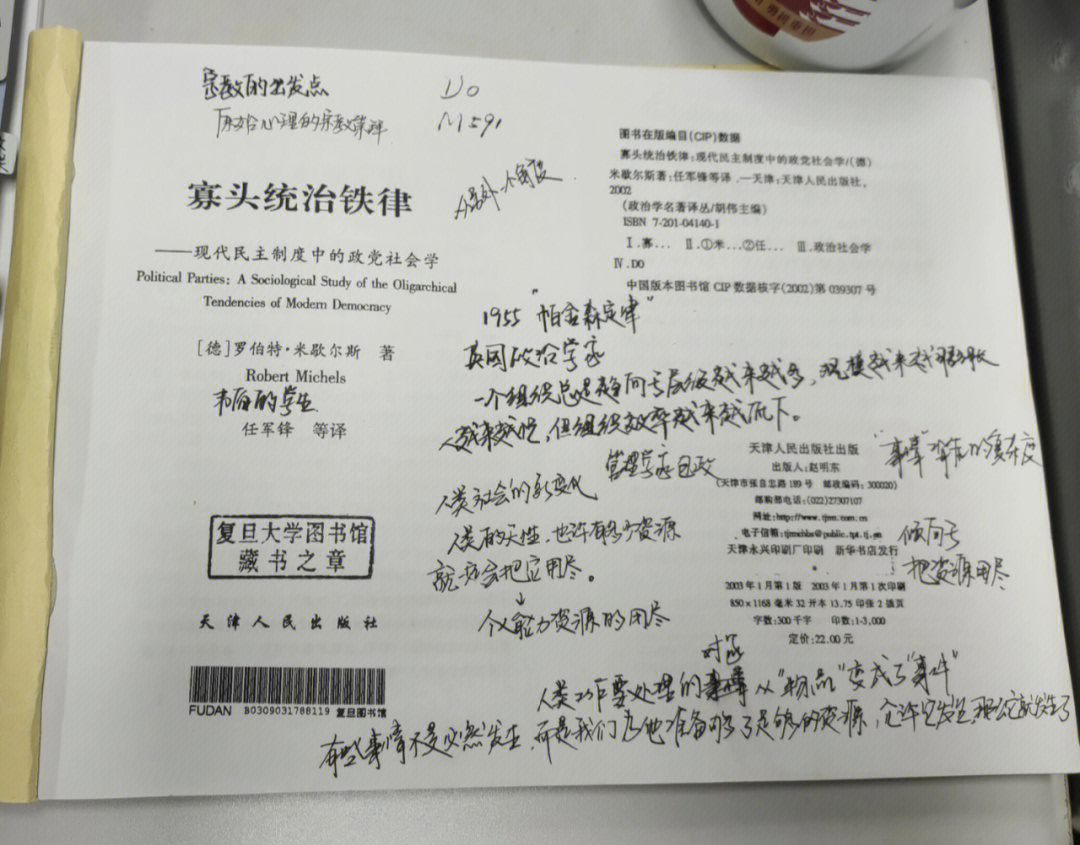 宗教的出发点
原始心理的宗教演绎
D0
M591
从另外一个角度
寡头统治铁律
——现代民主制度中的政党社会学
Political Parties: A Sociological Study of the Oligarchical
Tendencies of Modern Democracy
[德]罗伯特·米歇尔斯 著
Robert Michels
韦伯的学生
任军锋 等译
复旦大学图书馆
藏书之章
天津人民出版社
FUDAN B0309031788119 复旦图书馆
图书在版编目(CIP)数据
寡头统治铁律:现代民主制度中的政党社会学/(德)
米歇尔斯著;任军锋等译.—天津:天津人民出版社,
2002
(政治学名著译丛/胡伟主编)
ISBN 7-201-04140-1
Ⅰ.寡… Ⅱ.①米…②任… Ⅲ.政治社会学
Ⅳ.D0
中国版本图书馆 CIP 数据核字(2002)第 039307 号
1955 "帕金森定律"
英国政治学家
一个组织总是趋向于层级越来越多,规模越来越膨胀
人越来越忙,但组织效率越来越低下。
管理学家
人类社会的新变化
人类的天性,也许有多少资源
就会把它用尽。
↓
能力资源的用尽
天津人民出版社出版
出版人:赵明东
(天津市张自忠路 189 号 邮政编码:300020)
邮购部电话:(022)27307107
网址:http://www.tjrm.com.cn
电子信箱:tjrmchbs@public.tpt.tj.cn
天津永兴印刷厂印刷 新华书店发行
2003 年 1 月第 1 版 2003 年 1 月第 1 次印刷
850×1168 毫米 32 开本 13.75 印张 2 插页
字数:300 千字 印数:1-3,000
定价:22.00 元
"事情"的复杂度
倾向于
把资源用尽
对象
人类需要处理的 从"物品"变成了"事件"
有些事情不是必然发生,而是我们为他准备够了足够的资源,允许它发生,那么它就发生了